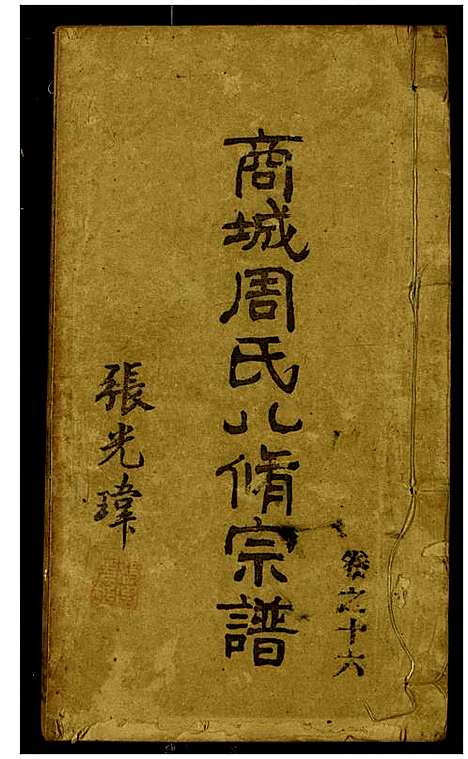 卷之十六
商城周氏八脩宗譜
張光瑋